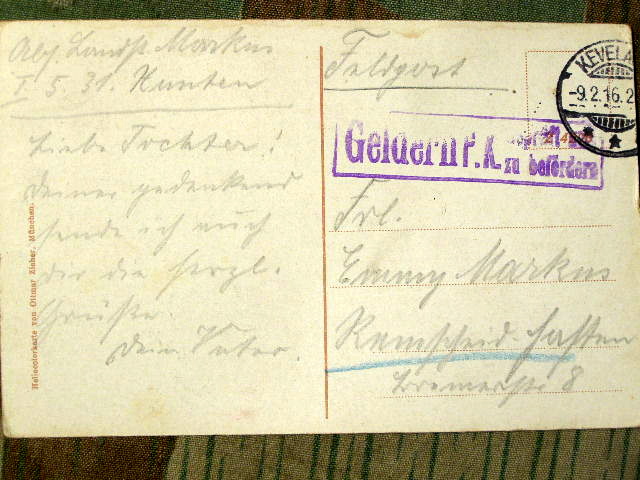 Abs. Landst. Markus
I. 5. 31. Hunten
Liebe Tochter!
Deiner gedenkend
sende ich auch
dir die herzl.
Grüße.
Dein Vater.
Heliocolorkarte von Ottmar Zieher, München.
Feldpost
KEVELA
-9.2.16.2
Geldern P. K.
zu befördern
Frl.
Emmy Markus
Remscheid-Hasten
Bremerstr 8